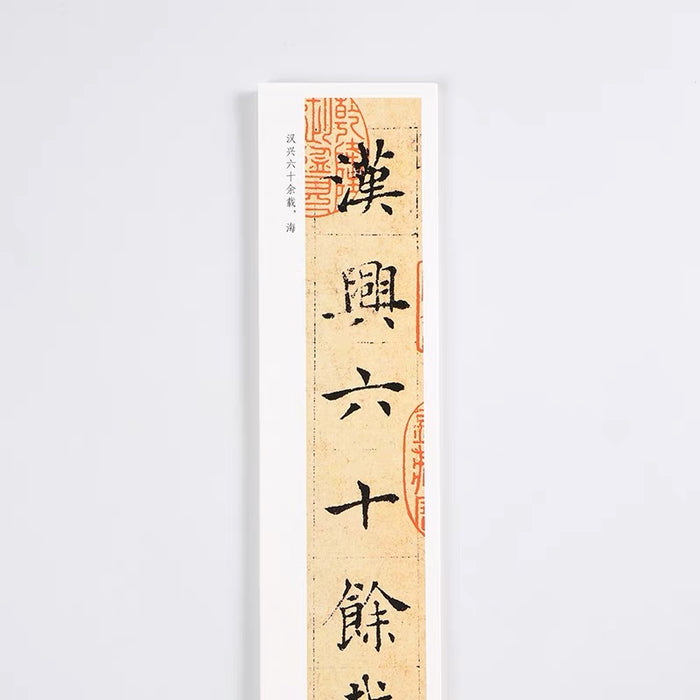 汉兴六十余载，海
漢興六十餘